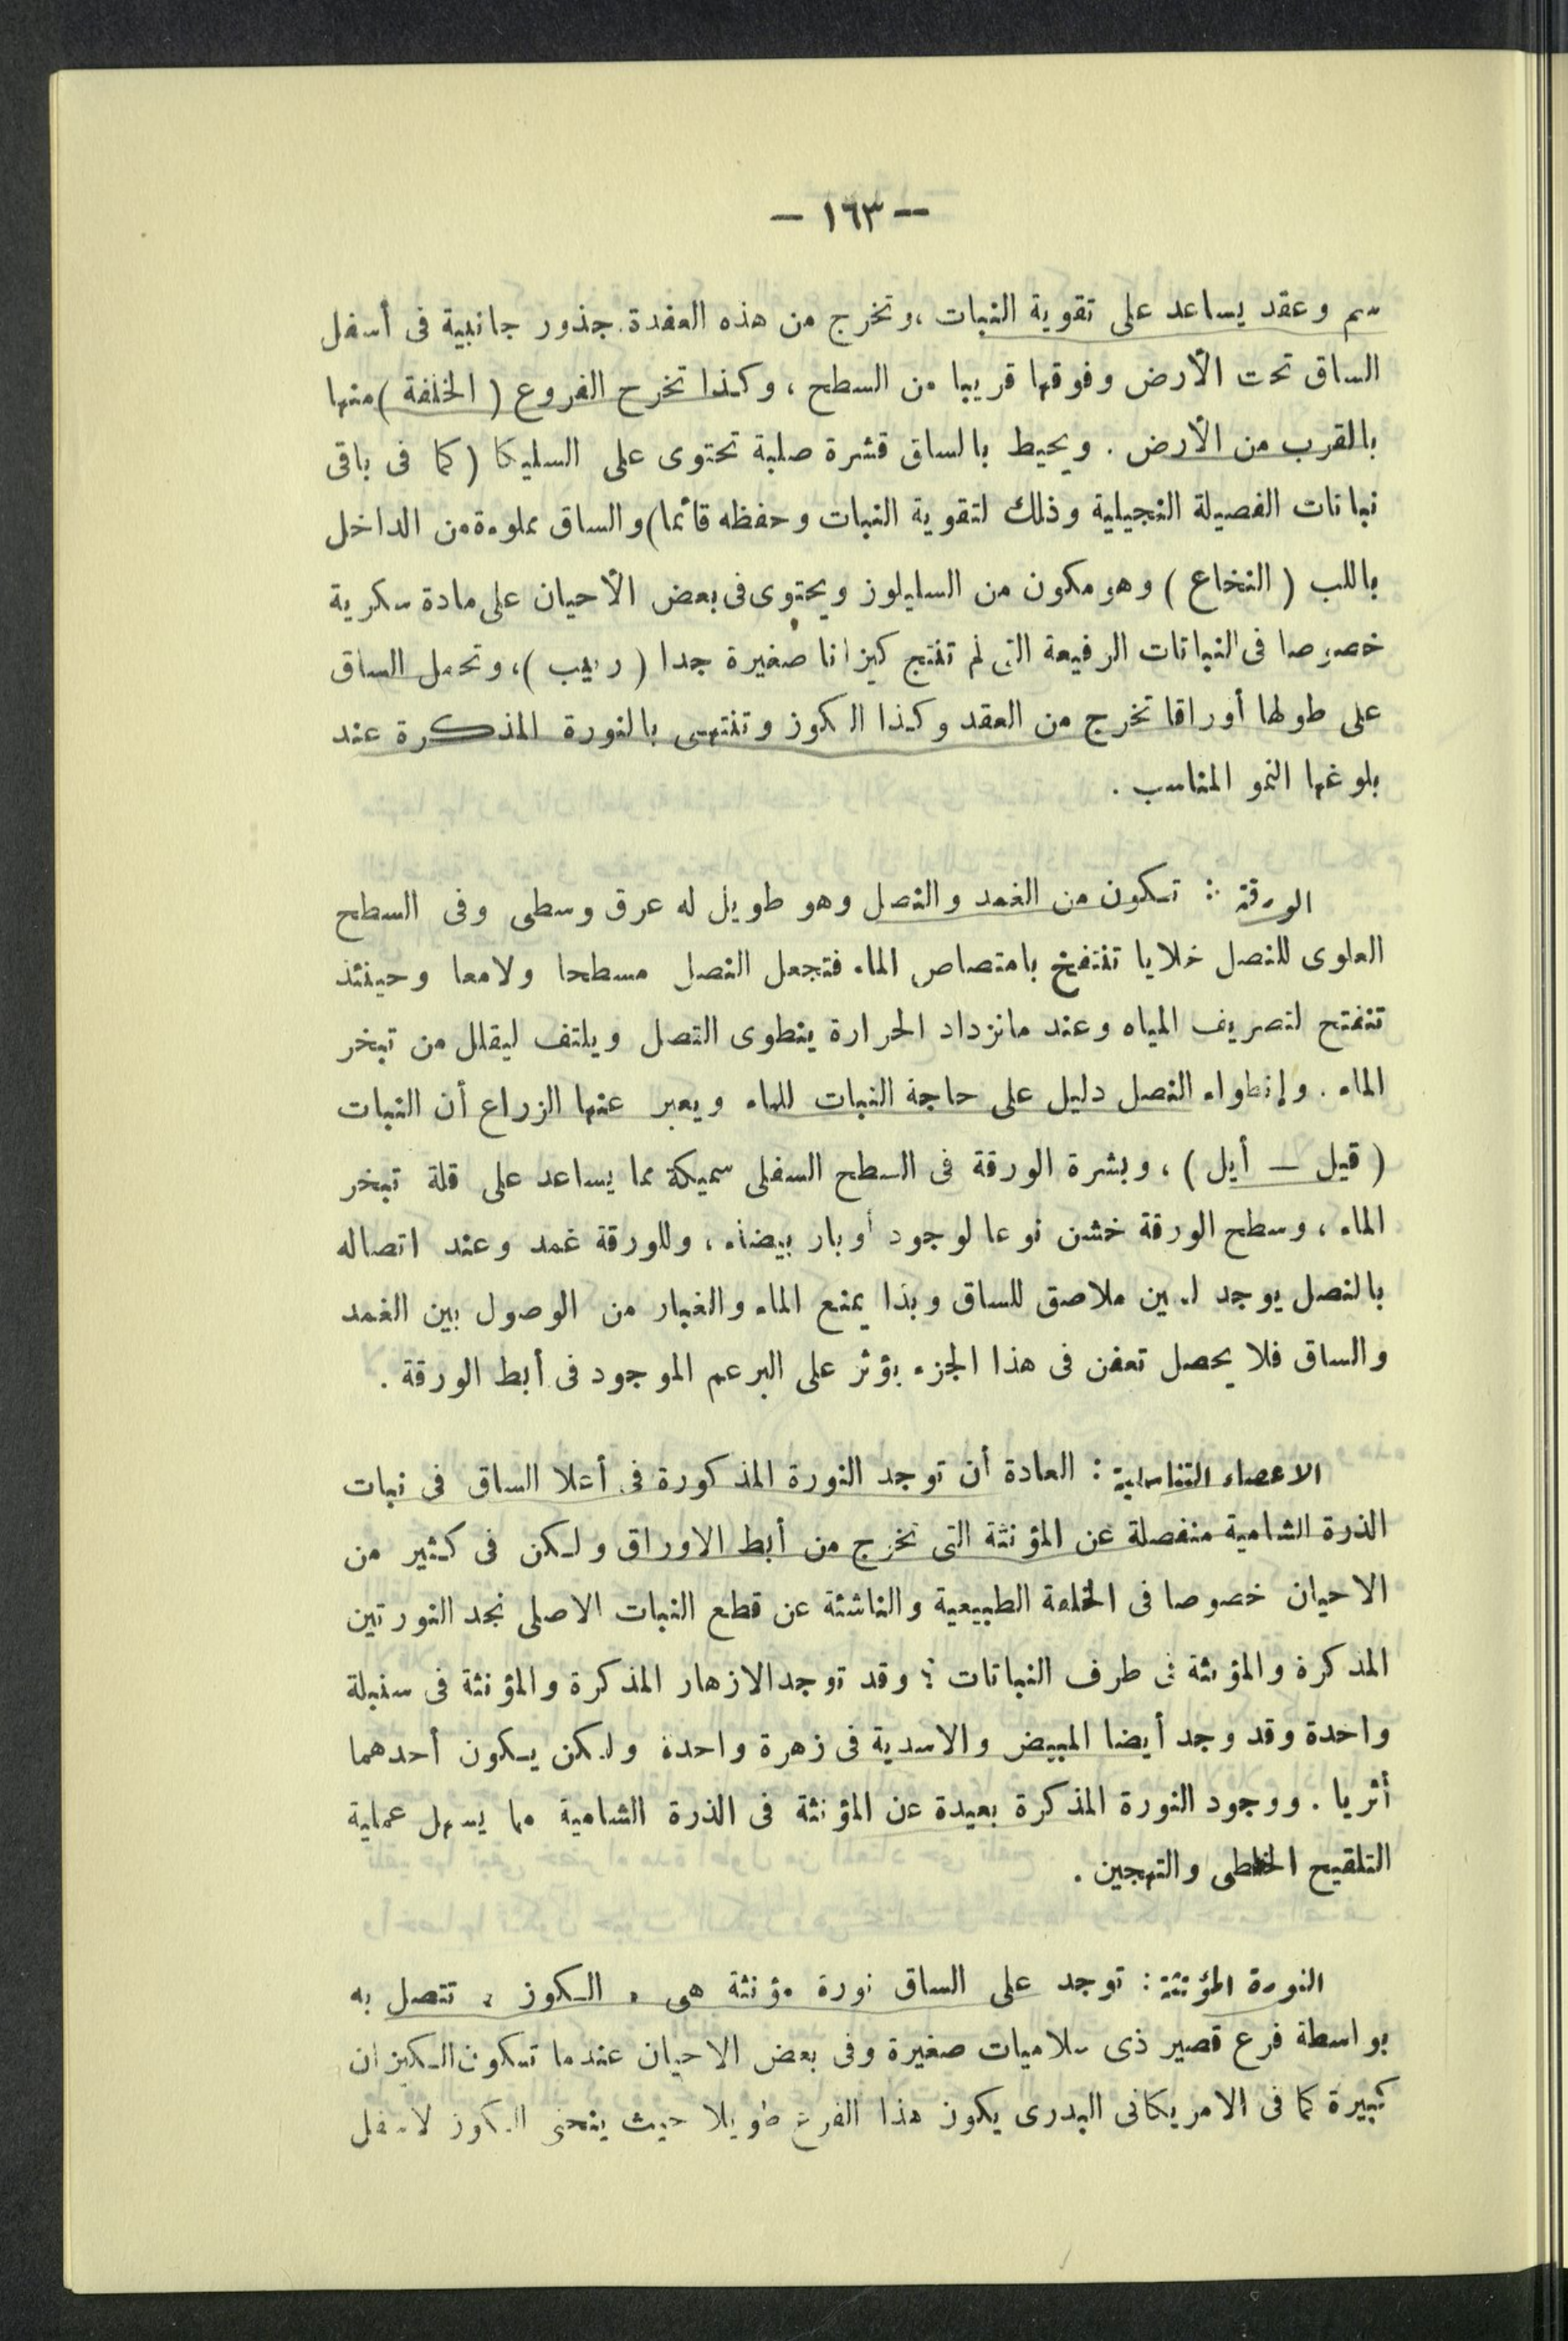 — ١٦٣ —
سم وعقد يساعد على تقوية النبات ، وتخرج من هذه العقدة جذور جانبية فى أسفل
الساق تحت الأرض وفوقها قريبا من السطح ، وكذا تخرج الفروع ( الخلفة ) منها
بالقرب من الأرض . ويحيط بالساق قشرة صلبة تحتوى على السليكا ( كما فى باقى
نباتات الفصيلة النجيلية وذلك لتقوية النبات وحفظه قائما ) والساق مملوءة من الداخل
باللب ( النخاع ) وهو مكون من السليلوز ويحتوى فى بعض الأحيان على مادة سكرية
خصوصا فى النباتات الرفيعة التى لم تنتج كيزانا صغيرة جدا ( رهيب ) ، وتحمل الساق
على طولها أوراقا تخرج من العقد وكذا الكوز وتنتهى بالنورة المذكرة عند
بلوغها النمو المناسب .
الورقة : تتكون من الغمد والنصل وهو طويل له عرق وسطى وفى السطح
العلوى للنصل خلايا تنتفخ بامتصاص الماء فتجعل النصل مسطحا ولامعا وحينئذ
تنفتح لتصريف المياه وعند ماتزداد الحرارة ينطوى النصل ويلتف ليقلل من تبخر
الماء . وإنطواء النصل دليل على حاجة النبات للماء ويعبر عنها الزراع أن النبات
( قيل — أيل ) ، وبشرة الورقة فى السطح السفلى سميكة مما يساعد على قلة تبخر
الماء ، وسطح الورقة خشن نوعا لوجود أوبار بيضاء ، وللورقة غمد وعند اتصاله
بالنصل يوجد لسين ملاصق للساق وبذا يمنع الماء والغبار من الوصول بين الغمد
والساق فلا يحصل تعفن فى هذا الجزء يؤثر على البرعم الموجود فى أبط الورقة .
الاعضاء التناسلية : العادة أن توجد النورة المذكورة فى أعلا الساق فى نبات
الذرة الشامية منفصلة عن المؤنثة التى تخرج من أبط الاوراق ولكن فى كثير من
الاحيان خصوصا فى الخلفة الطبيعية والناشئة عن قطع النبات الاصلى نجد النورتين
المذكرة والمؤنثة فى طرف النباتات ؛ وقد توجد الازهار المذكرة والمؤنثة فى سنبلة
واحدة وقد وجد أيضا المبيض والاسدية فى زهرة واحدة ولكن يكون أحدهما
أثريا . ووجود النورة المذكرة بعيدة عن المؤنثة فى الذرة الشامية مما يسهل عملية
التلقيح الخلطى والتهجين .
النورة المؤنثة : توجد على الساق نورة مؤنثة هى « الكوز » تتصل به
بواسطة فرع قصير ذى سلاميات صغيرة وفى بعض الاحيان عندما تتكون الكيزان
كبيرة كما فى الامريكانى البدرى يكون هذا الفرع طويلا حيث ينحنى الكوز لاسفل